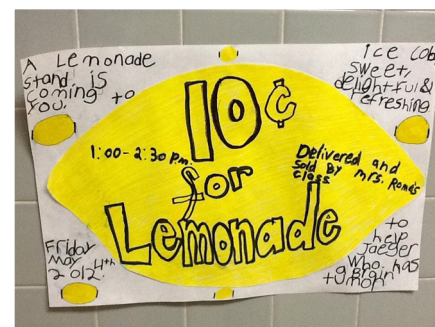 A Lemonade
stand is
coming to
you.
Ice Col
sweet,
delightful &
refreshing.
10¢
for
Lemonade
1:00-2:30 p.m.
Delivered and
sold By Mrs.
class
Friday
May 4th
2012
to
help
Jaeger
who has
a brain
tumor